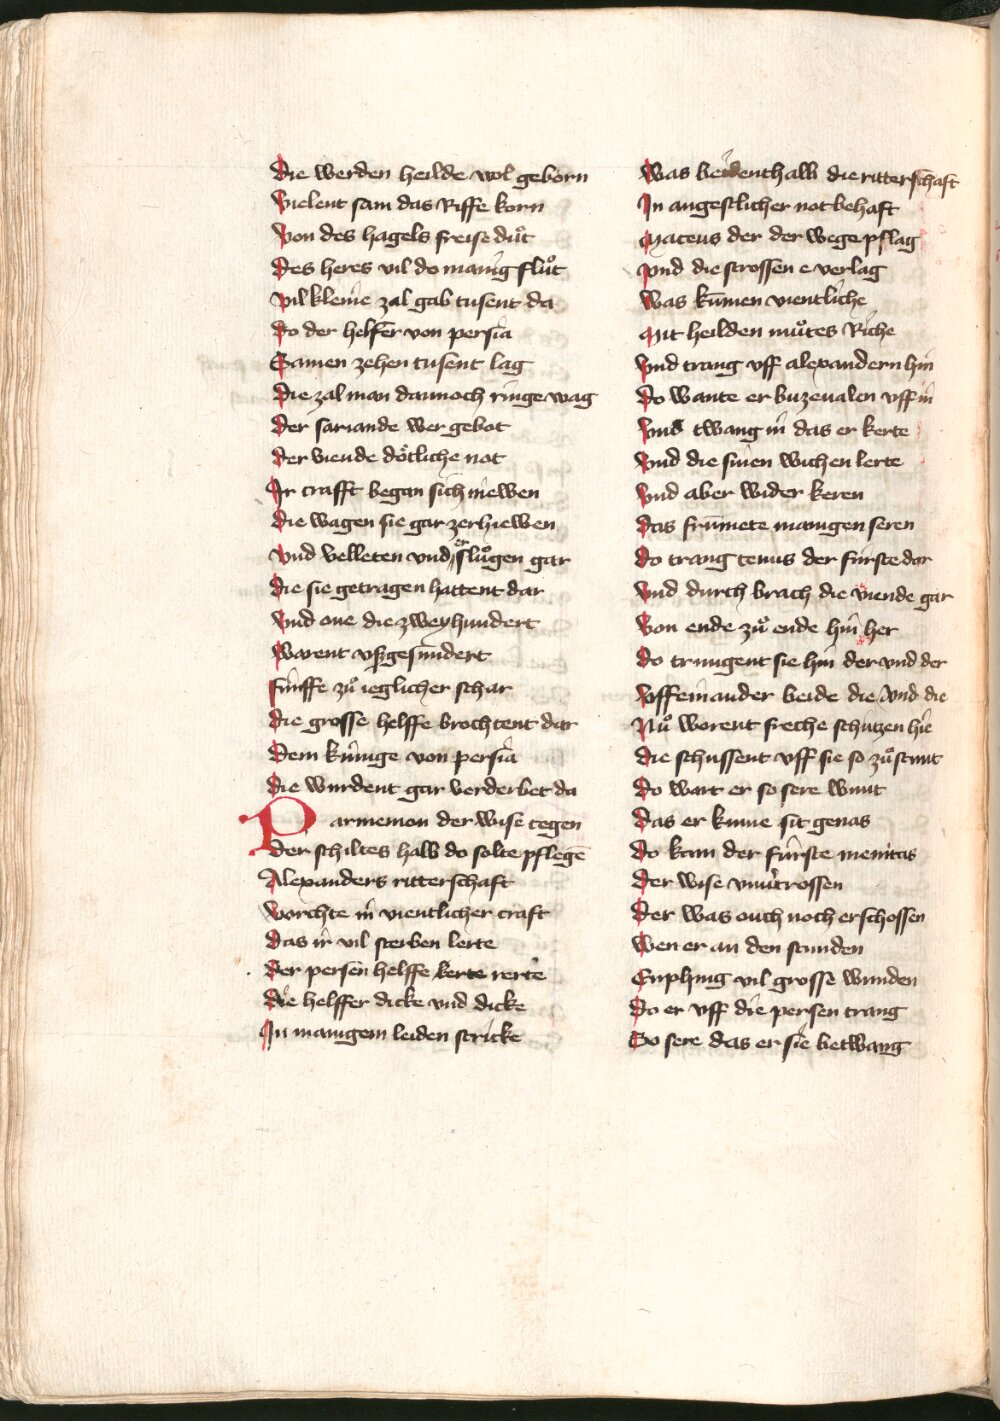 Die werden heilde wol geborn
Vielent sam das Riffe korn
Von des hagels freise důt
Des heres vil do manig flůt
Vil kleine zal gab tusent da
Do der helfer von persia
Samen zehen tusent lag
Die zal man dannoch ringe wag
Der sariande wer gebot
Der viende dötliche not
Ir crafft began sich niewen
Die wagen sie gar zerhiewen
Vnd velleten vnd erslůgen gar
Die sie getragen hattent dar
Vnd one die zweyhundert
Warent vßgesundert
Fúnffe zů ieglicher schar
Die grosse helffe brochtent dar
Dem kúnige von persia
Die wurdent gar verderbet da
Parmenion der wise tegen
Der schiltes halb do solte pflegē
Alexanders ritterschaft
Vorchte in vientlicher craft
Das ir vil sterben lerte
Der persen helffe kerte rerte
Die helffer dicke vnd dicke
In manigem leiden stricke
Was beidenthalb die ritterschaft
In angestlicher not behaft
Mateus der der wege pflag
Vnd die strossen e verlag
Was kumen vientliche
Mit heilden můtes Riche
Vnd trang vff alexandern hin
Do wante er buzeualen vff in
Vnd twang in das er kerte
Vnd die sinen wichen lerte
Vnd aber wider keren
Das frūmete manigen seren
Do trang tenus der fúrste dar
Vnd durch brach die viende gar
Von ende zů ende hin her
Do trungent sie hin der vnd der
Vff einander beide die vnd die
Nů worent freche schutzen hie
Die schussent vff sie so zůstunt
Do wart er so sere wunt
Das er kume sit genas
Do kam der fúrste menitas
Der wise vnuertrossen
Der was ouch noch erschossen
Wen er an den stunden
Enphing vil grosse wunden
Do er vff die persen trang
So sere das er sie betwang